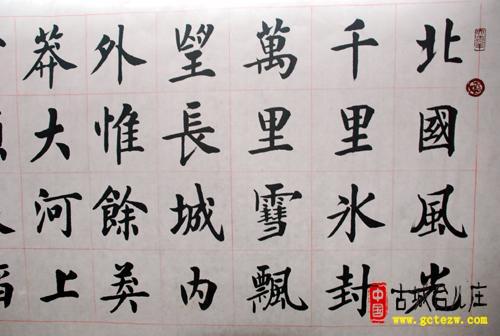 北國風光
千里氷封
萬里雪飄
望長城内
外惟餘莽
莽大河上
中国
古城台儿庄
www.gctezw.com